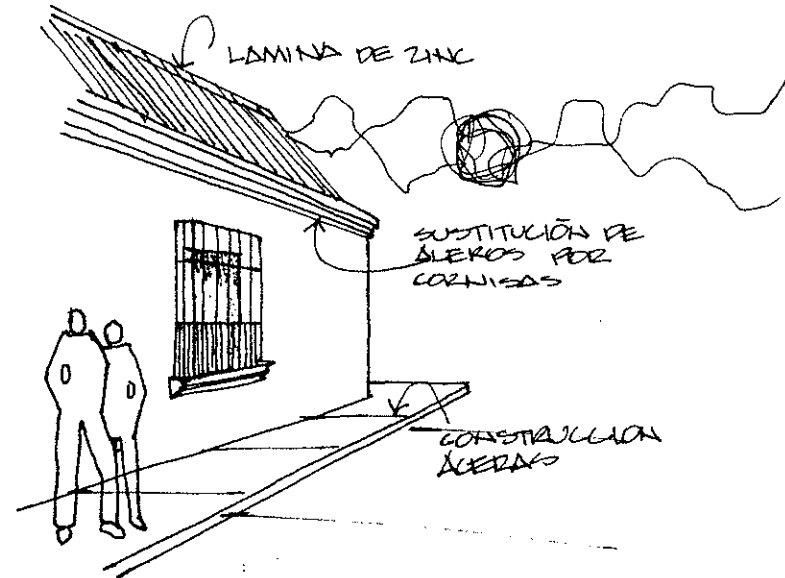 LAMINA DE ZINC
SUSTITUCIÓN DE
ALEROS POR
CORNISAS
CONSTRUCCION
ACERAS